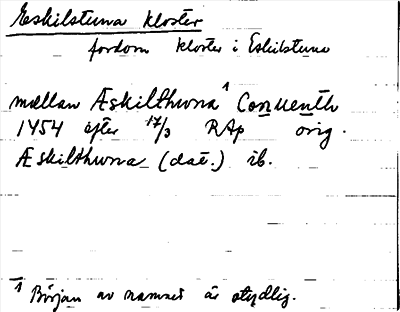 Eskilstuna kloster
fordom kloster i Eskilstuna
mellan Æskilthuna¹ Conuenth
1454 efter 17/3 RAp orig.
Æskilthuna (dat.) ib.
¹ Början av namnet är otydlig.